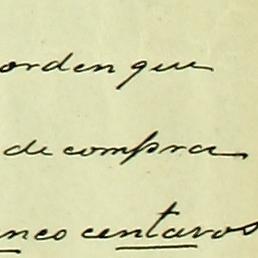 orden que
de compra
centavos